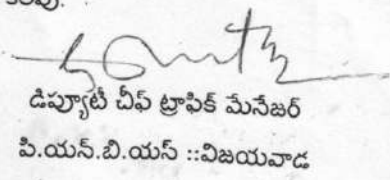 డిప్యూటీ చీఫ్ ట్రాఫిక్ మేనేజర్
పి.యన్.బి.యస్ ::విజయవాడ